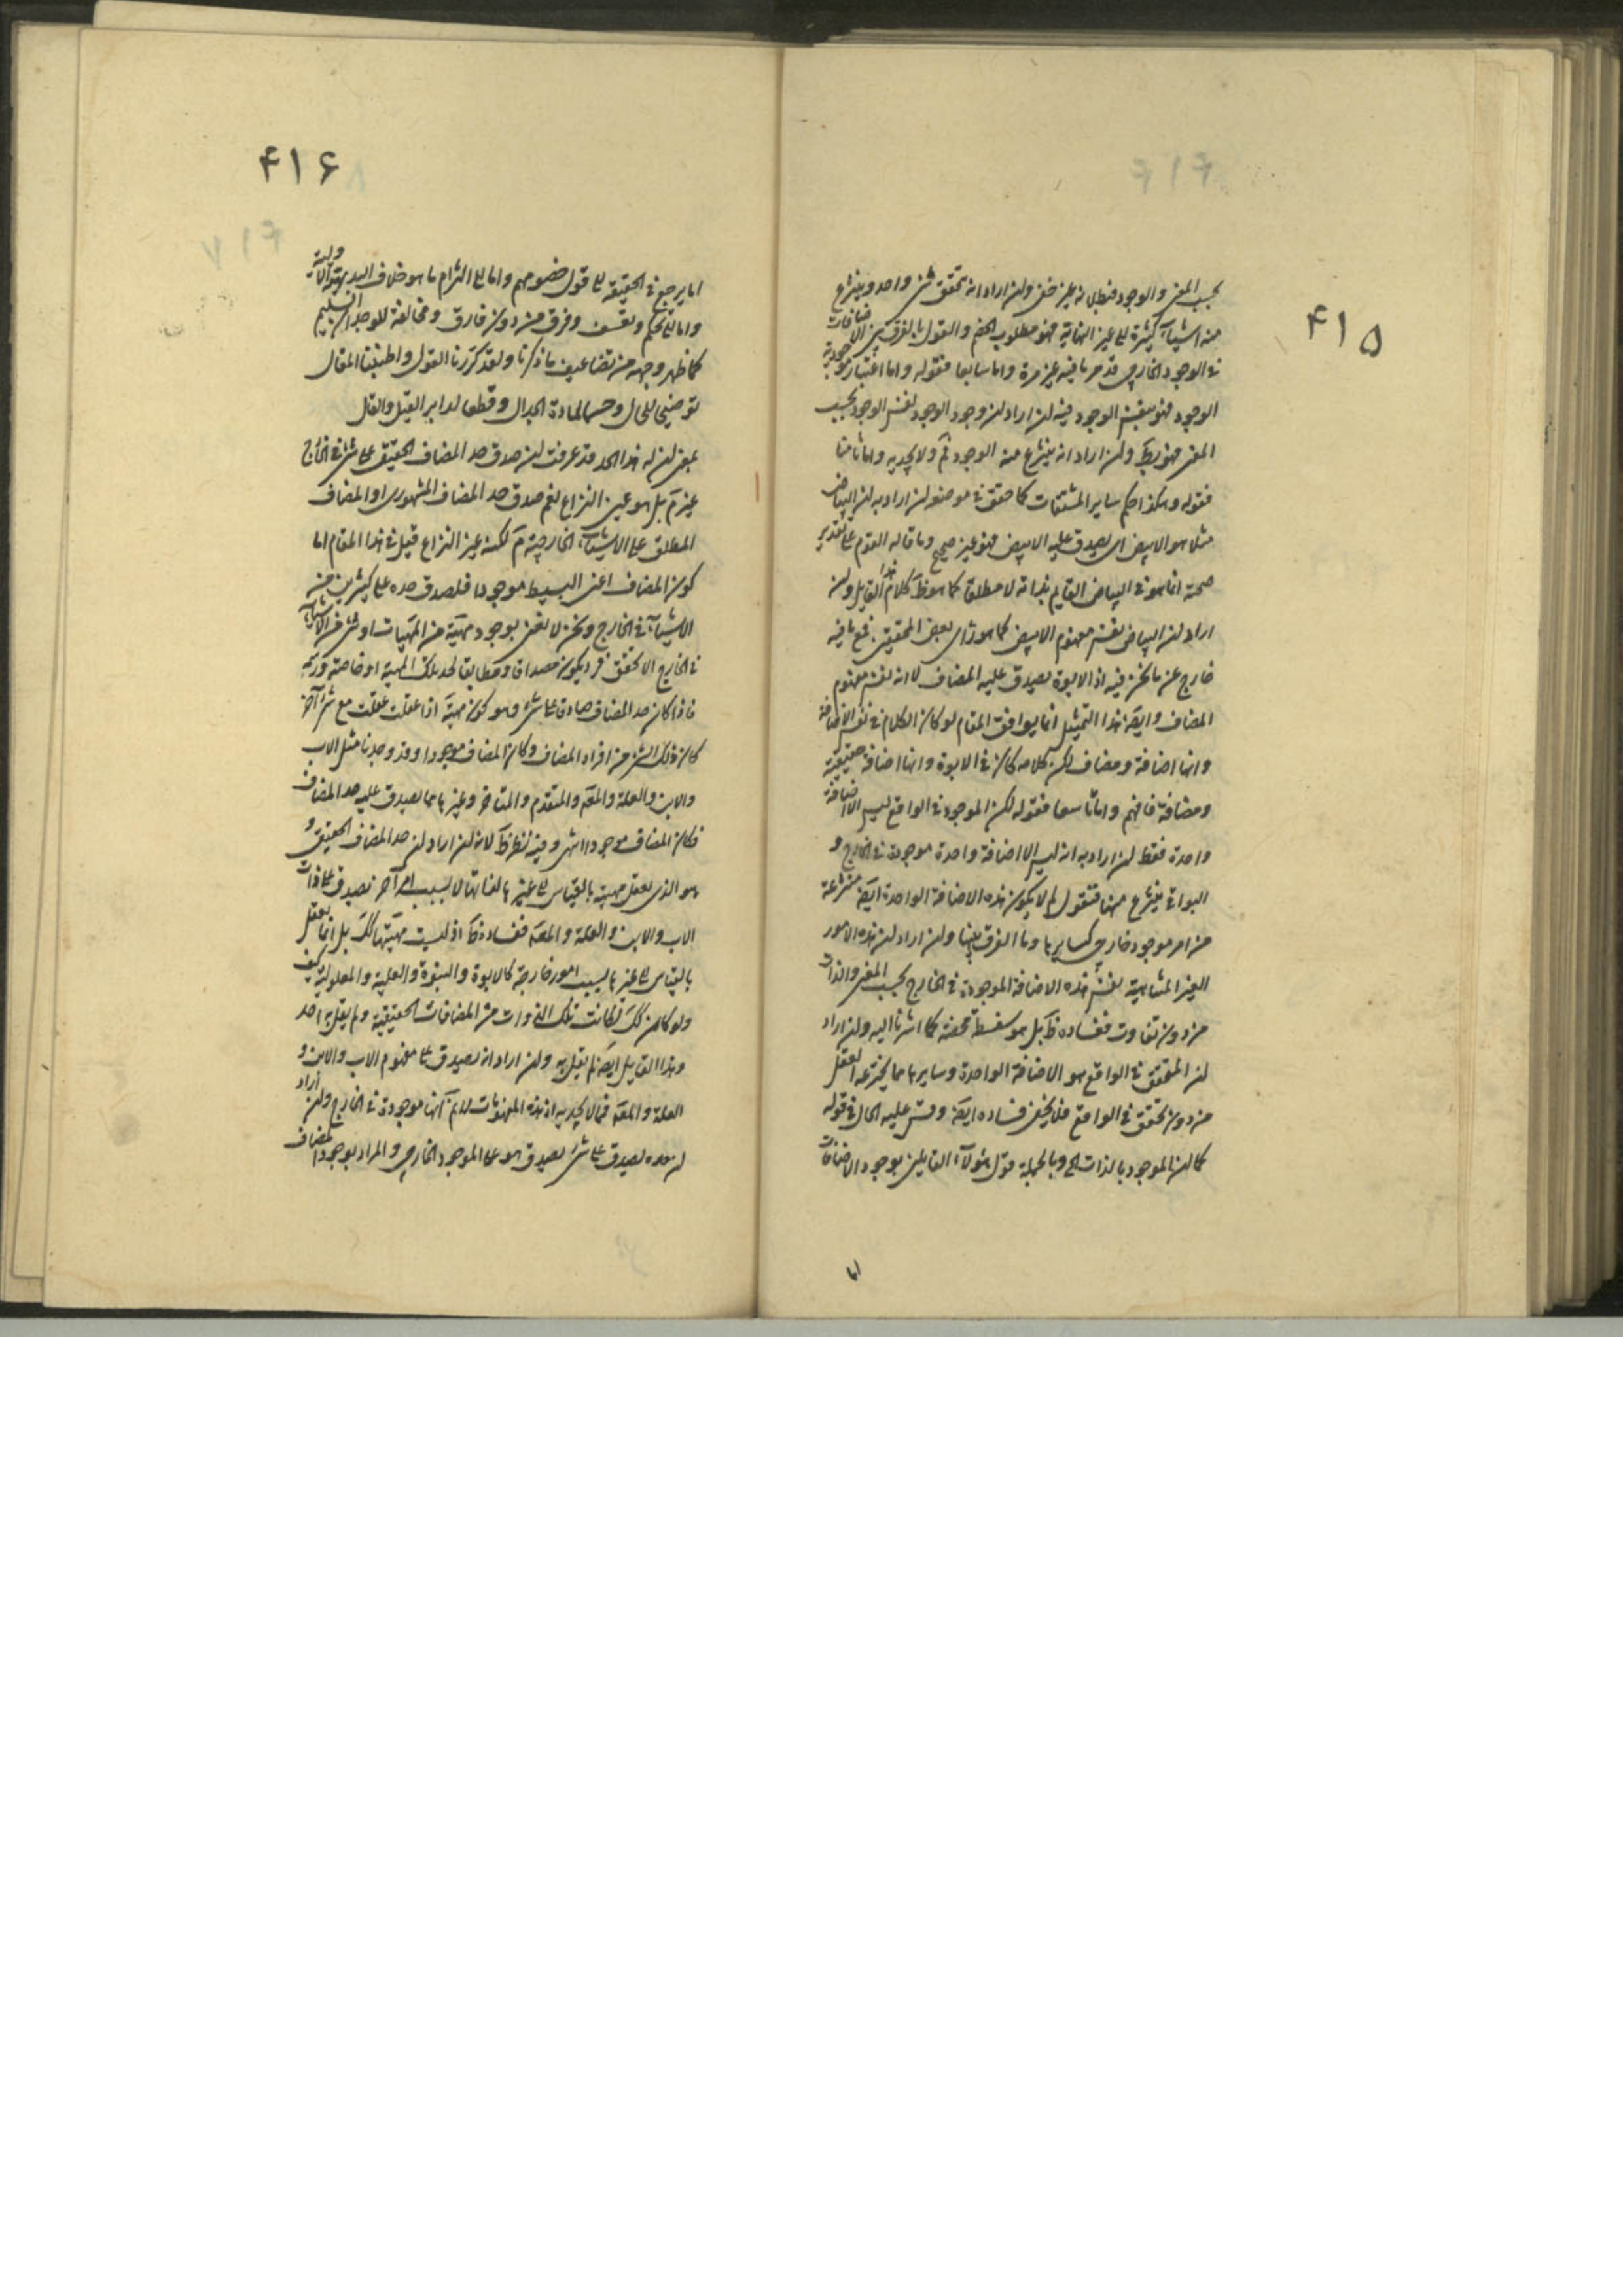 ۴۱۵
بحسب المعنى والوجود فبطلانه غير خفى ولن اراد انه تحقق شئ واحد وينتزع
منه اشياء كثيرة الى غير النهاية فهو مطلوب الخصم والقول بالفرق بين الاضافات
فى الوجود الخارجى قد مر ما فيه غير مرة واما سابعا فقوله واما اعتبار موجودية
الوجود فهو بنفس الوجود فيه لن اراد لن وجود الوجود لنفس الوجود بحسب
المعنى فهو بط ولن اراد انه ينتزع منه الوجود فم ولا يجديه واما ثامنا
فقوله وهكذا حكم ساير المشتقات كما حقق فى موضعه لن اراد به لن البياض
مثلا هو الابيض اى يصدق عليه الابيض فهو غير صحيح وما قاله القوم على تقدير
صحته انما هو فى البياض القايم بذاته لا مطلقا كما هو ظ كلام هذا القايل ولن
اراد لن البياض نفس مفهوم الابيض كما هو راى بعض المحققين فمع ما فيه
خارج عن ما نحن فيه اذ الابوة يصدق عليه المضاف لا انه نفس مفهوم
المضاف وايضا هذا التمثيل انما يوافق المقام لو كان الكلام فى نفس الاضافة
وانها اضافة ومضاف لكن كلامه كان فى الابوة وانها اضافة حقيقية
ومضافة فافهم واما تاسعا فقوله لكن الموجود فى الواقع ليس الا اضافة
واحدة فقط لن اراد به انه ليس الا اضافة واحدة موجودة فى الخارج و
البواقى ينتزع منها فنقول لم لا يكون هذه الاضافة الواحدة ايضا منتزعة
من امر موجود خارجى كسايرها وما الفرق بينها ولن اراد لن هذه الامور
الغير المتناهية نفس هذه الاضافة الموجودة فى الخارج بحسب المعنى والذات
من دون تفاوت ففساده ظ بل هو سفسطة محضة كما اشرنا اليه ولن اراد
لن المتحقق فى الواقع هو الاضافة الواحدة وسايرها مما يخترعه العقل
من دون تحقق فى الواقع فلا يخفى فساده ايضا وقس عليه الحال فى قوله
كما لن الموجود بالذات الخ وبالجملة قول هؤلاء القايلين بوجود الاضافات
اما
۴۱۶
اما يرجع فى الحقيقة الى قول خصومهم واما الى التزام ما هو خلاف البديهة الاولية
واما الى تحكم وتعسف وفرق من دون فارق ومخالفة للوجدان السليم
كما ظهر وجهه من تضاعيف ما ذكرنا ولقد كررنا القول واطنبنا المقال
توضيحا للحال وحسما لمادة الجدال وقطعا لدابر القيل والقال
بمعنى لن له هذا الحد قد عرفت لن صدق حد المضاف الحقيقى على شئ فى الخارج
غير م بل هو عين النزاع نعم صدق حد المضاف المشهورى او المضاف
المطلق على الاشياء الخارجية م لكنه غير النزاع قيل فى هذا المقام اما
كون المضاف اعنى البسيط موجودا فلصدق حده على كثير من
الاشياء فى الخارج ونحن لا نعنى بوجود مهية من المهيات او شئ من الاشياء
فى الخارج الا تحقق فرد يكون مصداقا ومطابقا لحد تلك المهية او خاصته ورسمه
فاذا كان حد المضاف صادقا على شئ وهو كون مهية اذا عقلت عقلت مع شئ آخر
كان ذلك الشئ من افراد المضاف وكان المضاف موجودا وقد وجدنا مثل الاب
والابن والعلة والمع والمتقدم والمتاخر وغيرها مما يصدق عليه حد المضاف
فكان المضاف موجودا انتهى وفيه نظر ظ لانه لن اراد لن حد المضاف الحقيقى و
هو الذى يعقل مهيته بالقياس الى غيرها لذاتها لا بسبب امر آخر يصدق على ذات
الاب والابن والعلة والمع ففساده ظ اذ ليست مهيتها كك بل انما يعقل
بالقياس الى غيرها بسبب امور خارجة كالابوة والبنوة والعلية والمعلولية كيف
ولو كان كك لكانت تلك الذوات من المضافات الحقيقية ولم يقل به احد
وهذا القايل ايضا لم يقل به ولن اراد انه يصدق على مفهوم الاب والابن و
العلة والمع فما لا يجديه اذ هذه المفهومات لا نم انها موجودة فى الخارج ولن اراد
لن حده يصدق على شئ يصدق هو على الموجود الخارجى والمراد بوجود المضاف